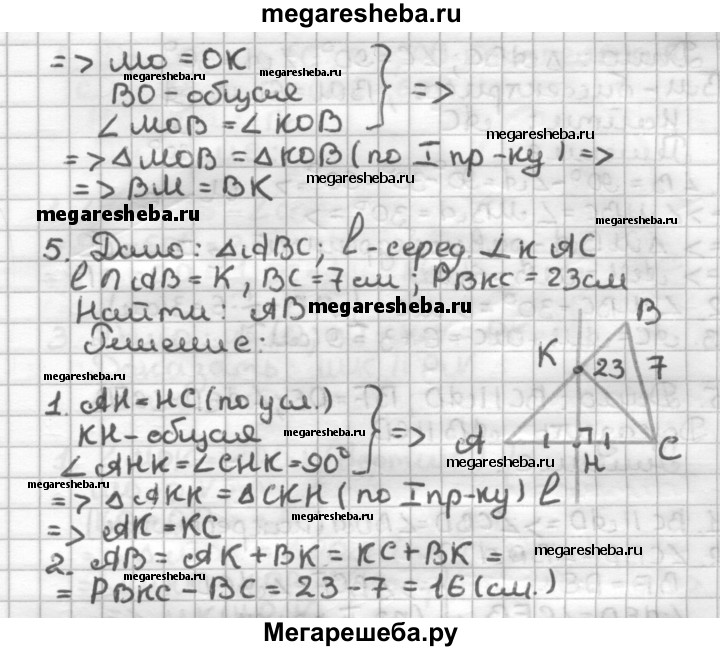 megaresheba.ru
=> MO = OK
megaresheba.ru
BO - общая
∠ MOB = ∠ KOB } =>
megaresheba.ru
=> Δ MOB = Δ KOB (по I пр-ку) =>
megaresheba.ru
=> BM = BK
megaresheba.ru
megaresheba.ru
5. Дано: ΔABC; l - серед ⊥ к AC
l ∩ AB = K, BC = 7 см; P BKC = 23 см
Найти: AB
megaresheba.ru
Решение:
megaresheba.ru
1. AH = HC (по усл.)
megaresheba.ru
KH - общая
megaresheba.ru
∠ AHK = ∠ CHK = 90° } =>
megaresheba.ru
=> Δ AKK = Δ CKH (по I пр-ку)
megaresheba.ru
=> AK = KC
megaresheba.ru
2. AB = AK + BK = KC + BK =
megaresheba.ru
megaresheba.ru
= P BKC - BC = 23 - 7 = 16 (см.)
B
K
23
7
A
H
C
l
Мегарешеба.ру